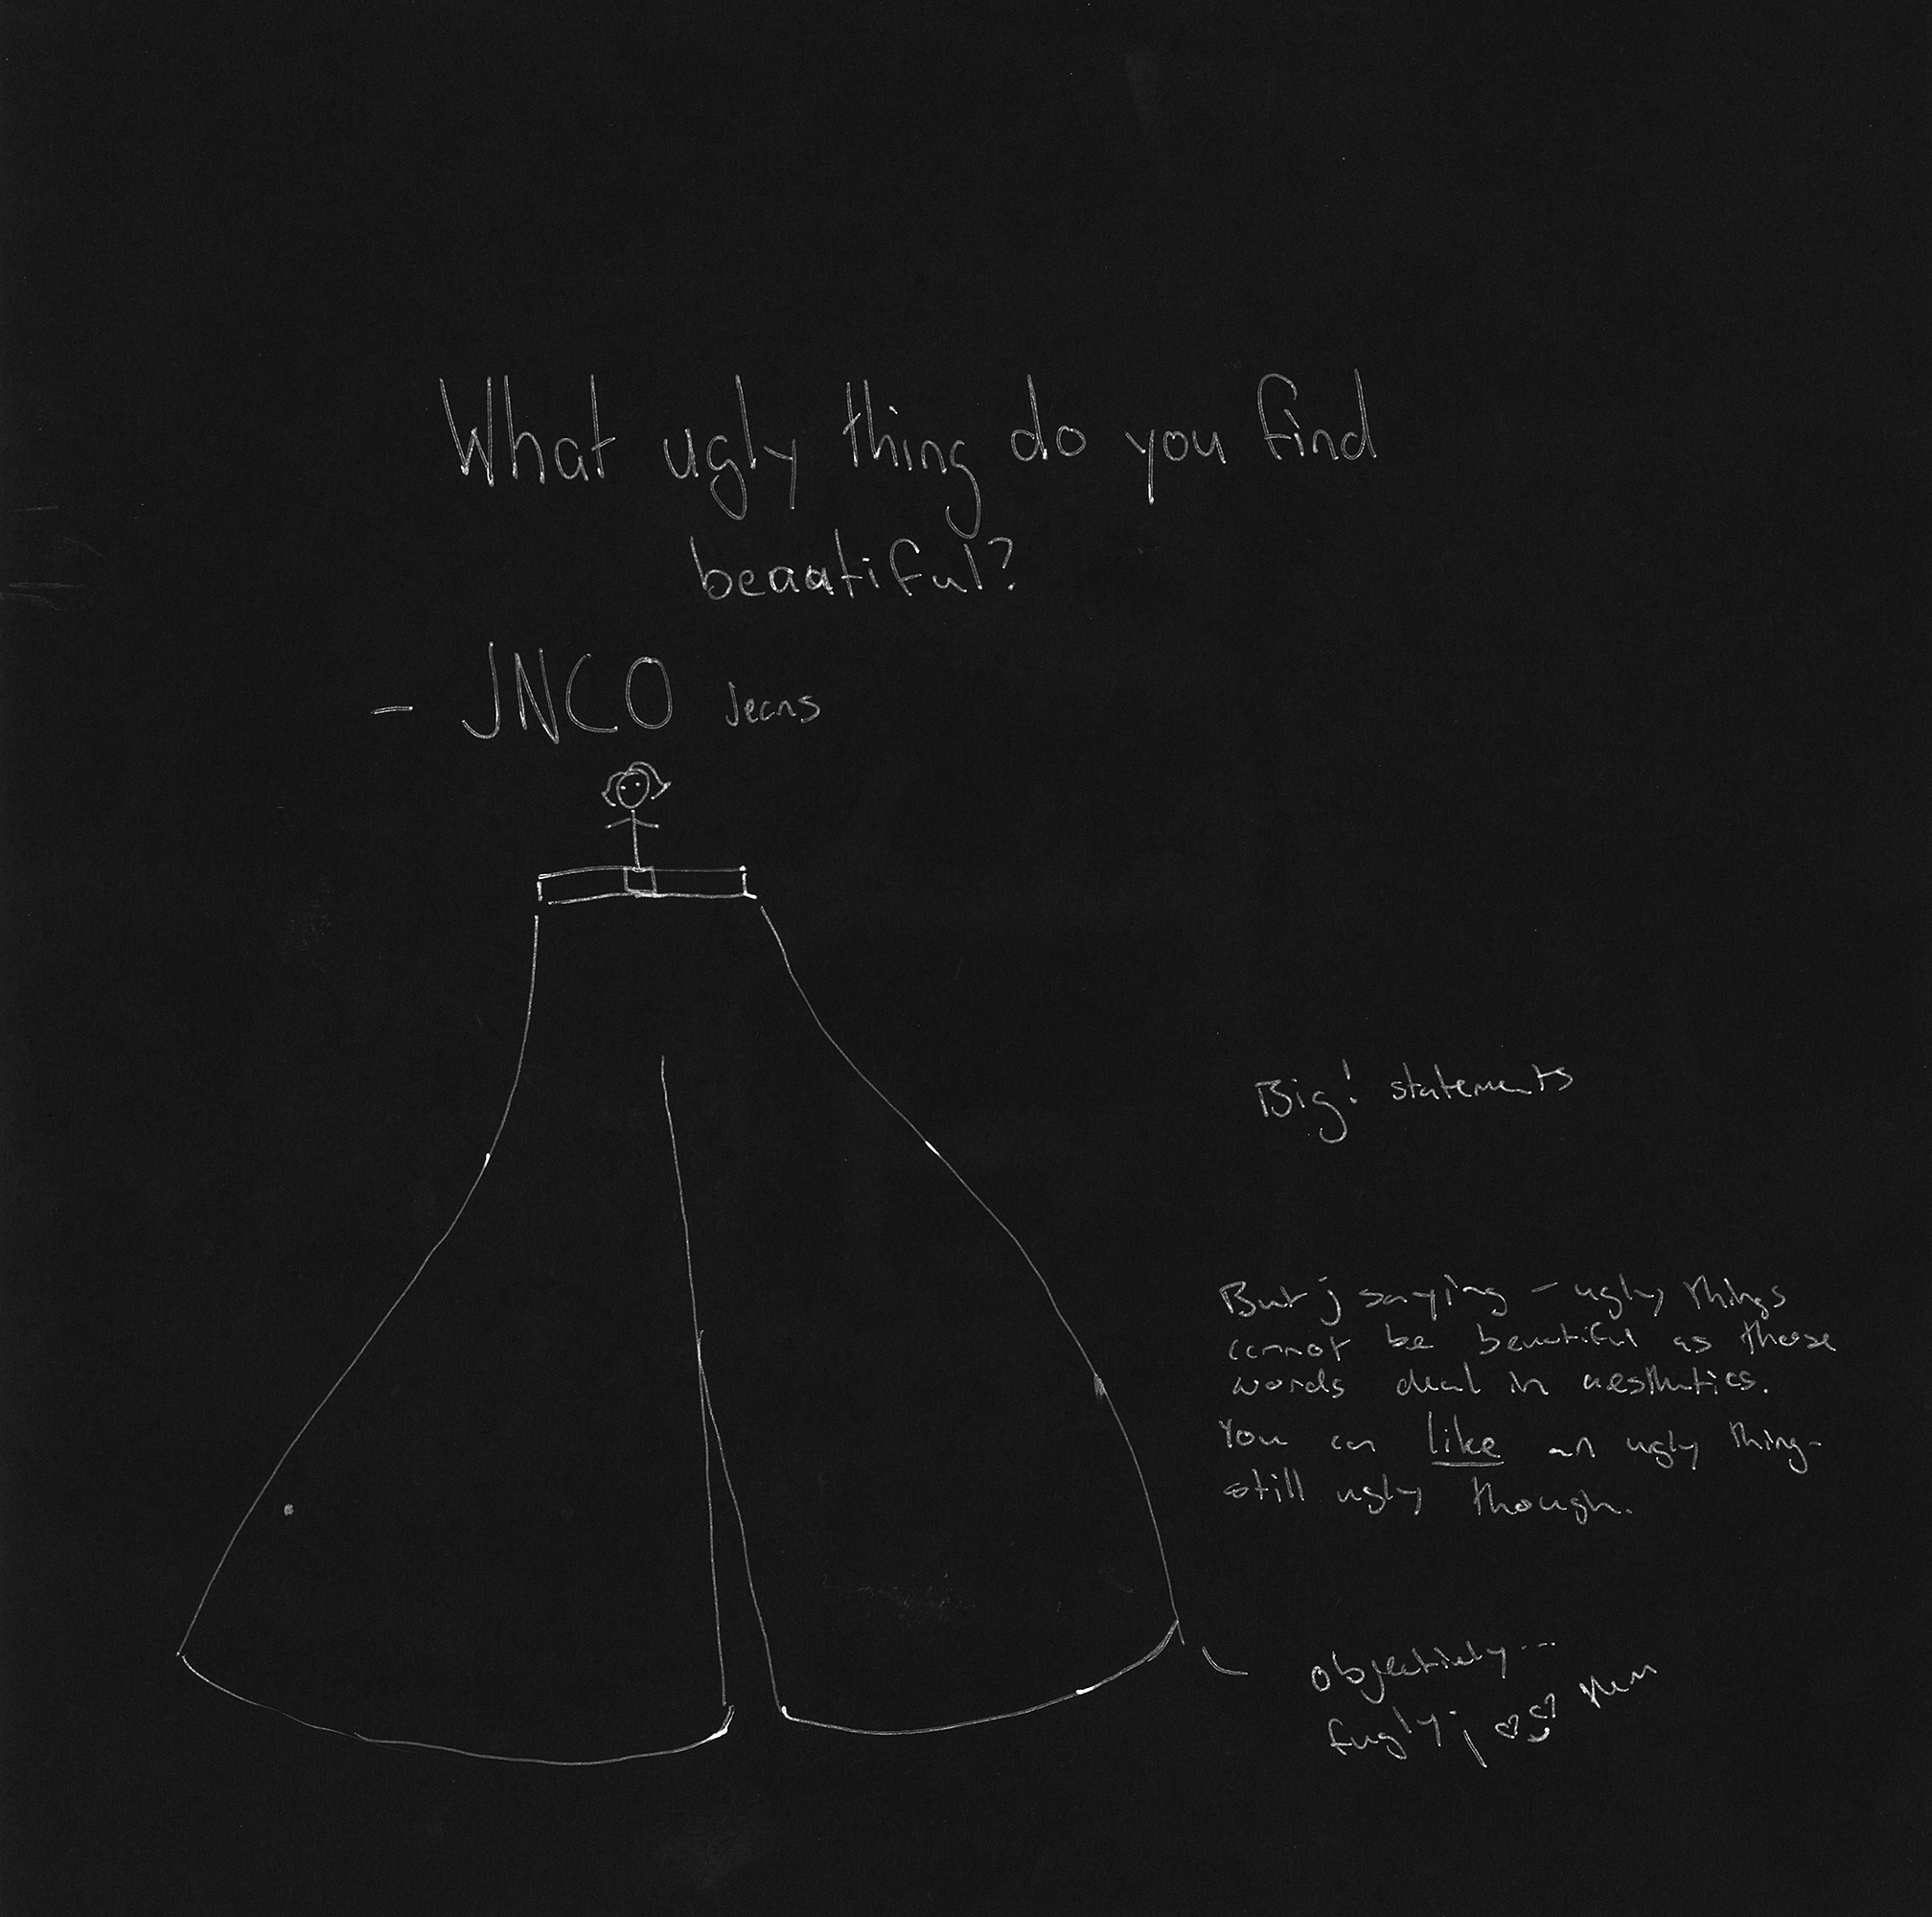 What ugly thing do you find
beautiful?
- JNCO Jeans
Big! statements
But j saying - ugly things
cannot be beautiful as those
words deal in aesthetics.
You can like an ugly thing -
still ugly though.
Objectively ...
fugly. I them